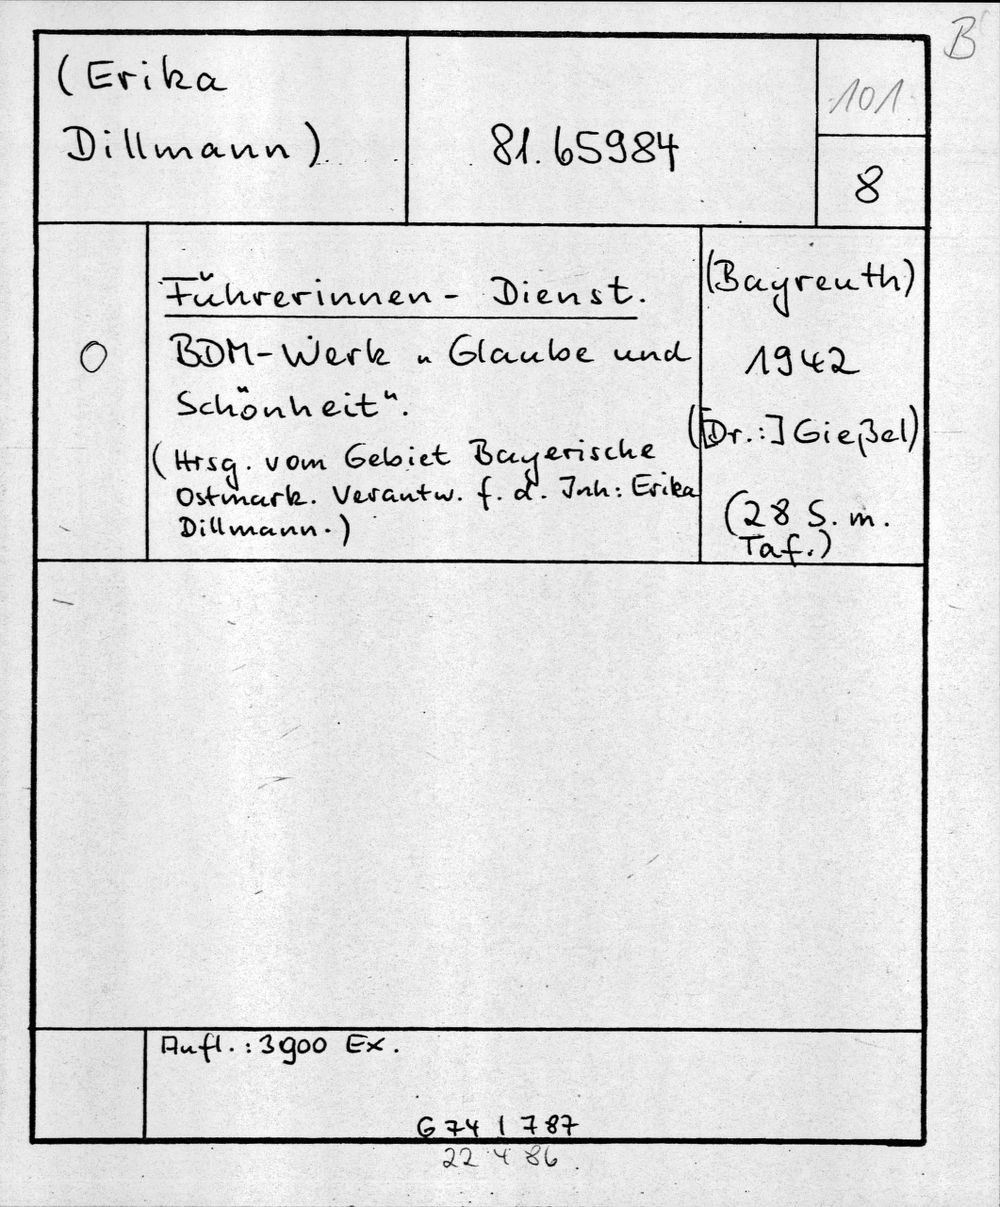 B
(Erika
Dillmann)
81.65984
101
8
O
Führerinnen - Dienst.
BDM-Werk „Glaube und
Schönheit“.
(Hrsg. vom Gebiet Bayerische
Ostmark. Verantw. f. d. Inh: Erika
Dillmann.)
(Bayreuth)
1942
([Dr.:] Gießel)
(28 S. m.
Taf.)
Aufl.: 3900 Ex.
G 74 | 787
22 4 86